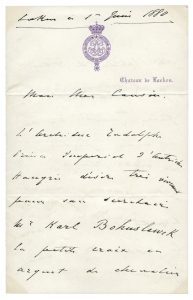 Laeken le 1er Juin 1880
Château de Laeken.
Mon cher Comte,
L'Archiduc Rodolphe
Prince Impérial d'Autriche
Hongrie désire très vivement
pour son secrétaire
Mr Karl Bohuslawek
la petite croix en
argent de chevalier